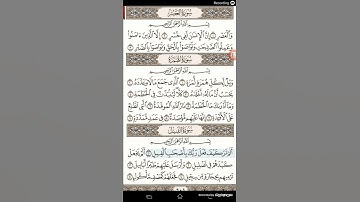 Recording
سورة العصر
بسم الله الرحمن الرحيم
والعصر ۝ إن الإنسن لفى خسر ۝ إلا الذين ءامنوا
وعملوا الصلحت وتواصوا بالحق وتواصوا بالصبر ۝
سورة الهمزة
بسم الله الرحمن الرحيم
ويل لكل همزة لمزة ۝ الذى جمع مالا وعدده ۝
يحسب أن ماله أخلده ۝ كلا لينبذن فى الحطمة ۝
وما أدرىك ما الحطمة ۝ نار الله الموقدة ۝ التى تطلع
على الأفئدة ۝ إنها عليهم مؤصدة ۝ فى عمد ممددة ۝
سورة الفيل
بسم الله الرحمن الرحيم
ألم تر كيف فعل ربك بأصحب الفيل ۝ ألم يجعل
كيدهم فى تضليل ۝ وأرسل عليهم طيرا أبابيل ۝
ترميهم بحجارة من سجيل ۝ فجعلهم كعصف مأكول ۝